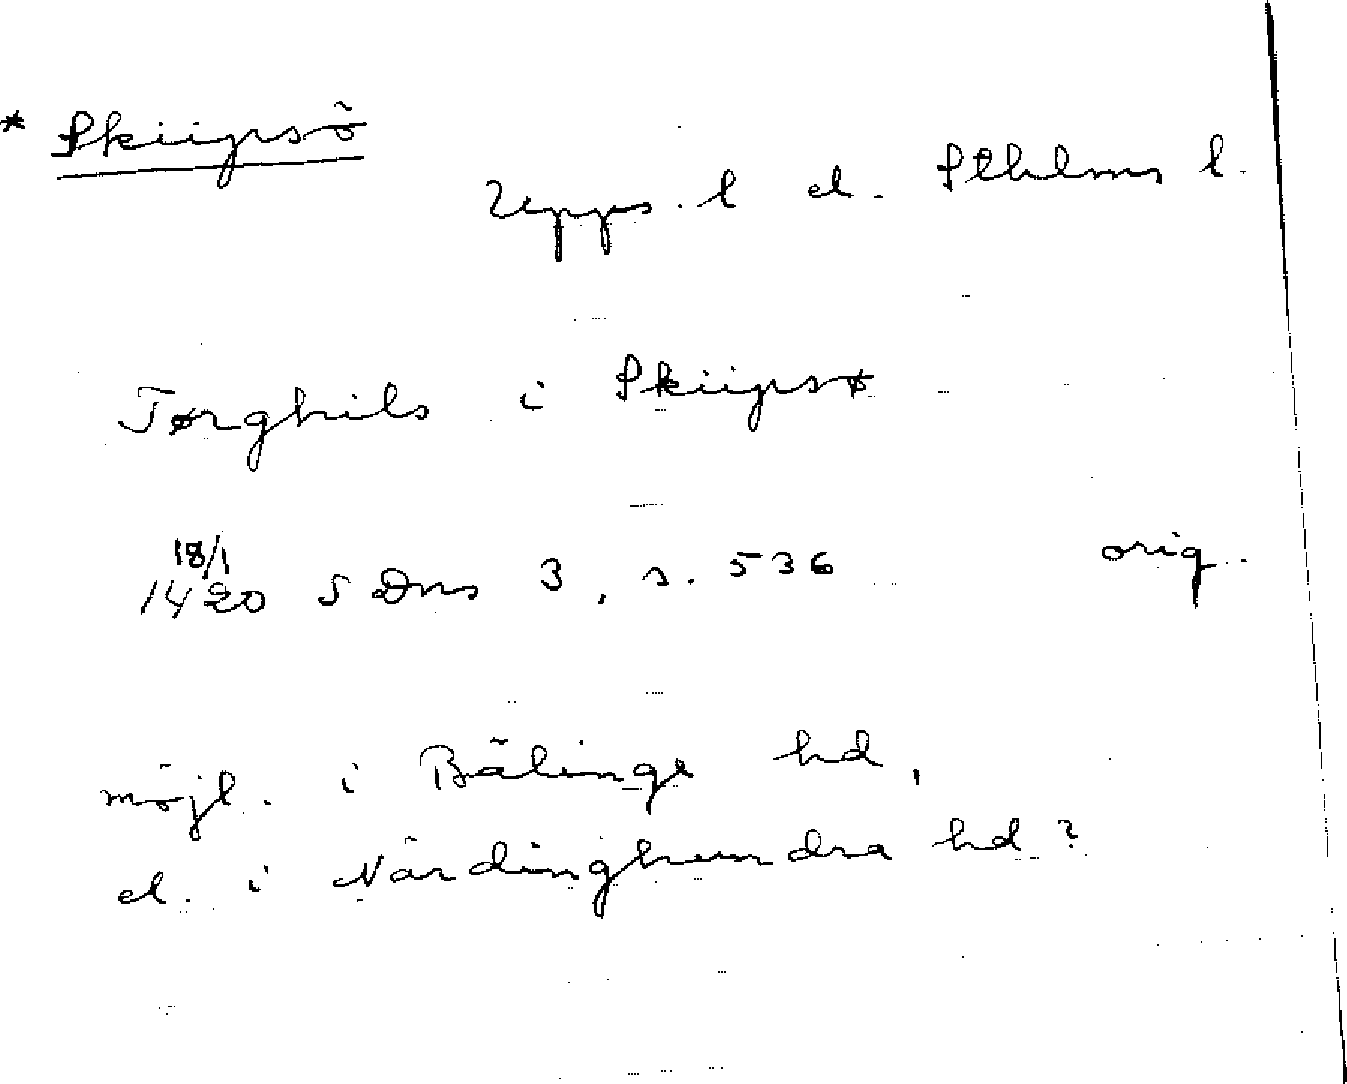 * Skiipsö
Upps. l el. Sthlms l.
Tørghils i Skiipsø
18/1
1420 SDns 3, s. 536 orig.
möjl. i Bälinge hd,
el. i Närdinghundra hd?